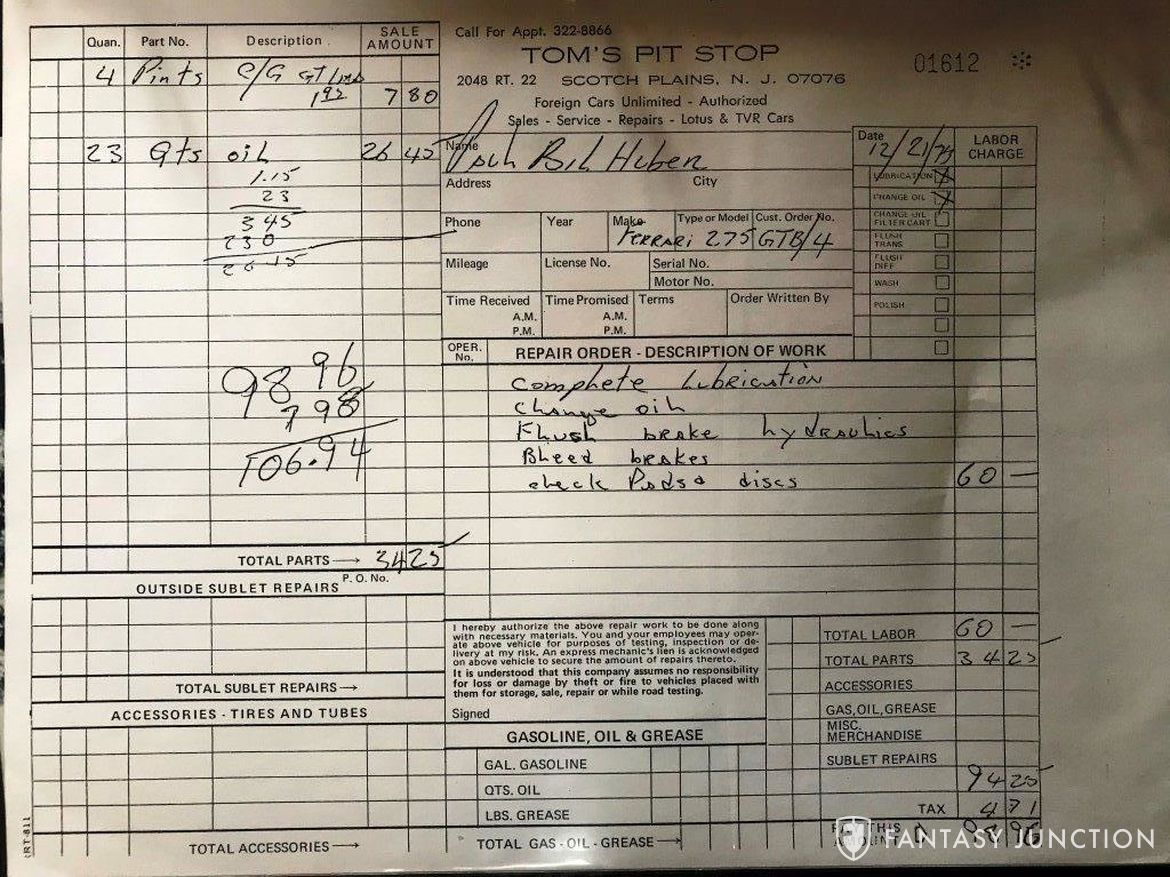 Quan. Part No. Description SALE AMOUNT
4 Pints C/G GT LMA
1.95 7 80
23 Qts oil 26 45
1.15
23
345
230
2645
98 96
7 98
106.94
TOTAL PARTS → 34 25
OUTSIDE SUBLET REPAIRS P. O. No.
TOTAL SUBLET REPAIRS →
ACCESSORIES - TIRES AND TUBES
TOTAL ACCESSORIES →
RT-811
Call For Appt. 322-8866
TOM'S PIT STOP
2048 RT. 22 SCOTCH PLAINS, N. J. 07076
01612
Foreign Cars Unlimited - Authorized
Sales - Service - Repairs - Lotus & TVR Cars
Name Bil Huber
Address City
Phone Year Make Type or Model Cust. Order No.
Ferrari 275 GTB/4
Mileage License No. Serial No.
Motor No.
Time Received Time Promised Terms Order Written By
A.M. A.M.
P.M. P.M.
Date LABOR CHARGE
12/21/
LUBRICATION
CHANGE OIL
CHANGE OIL FILTER CART
FLUSH TRANS
FLUSH DIFF
WASH
POLISH
OPER. No. REPAIR ORDER - DESCRIPTION OF WORK
Complete Lubrication
Change oil
Flush brake hydraulics
Bleed brakes
check Pads discs 60 —
I hereby authorize the above repair work to be done along
with necessary materials. You and your employees may oper-
ate above vehicle for purposes of testing, inspection or de-
livery at my risk. An express mechanic's lien is acknowledged
on above vehicle to secure the amount of repairs thereto.
It is understood that this company assumes no responsibility
for loss or damage by theft or fire to vehicles placed with
them for storage, sale, repair or while road testing.
Signed
GASOLINE, OIL & GREASE
GAL. GASOLINE
QTS. OIL
LBS. GREASE
TOTAL GAS - OIL - GREASE →
TOTAL LABOR 60 —
TOTAL PARTS 34 25
ACCESSORIES
GAS, OIL, GREASE
MISC. MERCHANDISE
SUBLET REPAIRS
94 25
TAX 4 71
PAY THIS AMOUNT 98 96
FANTASY JUNCTION